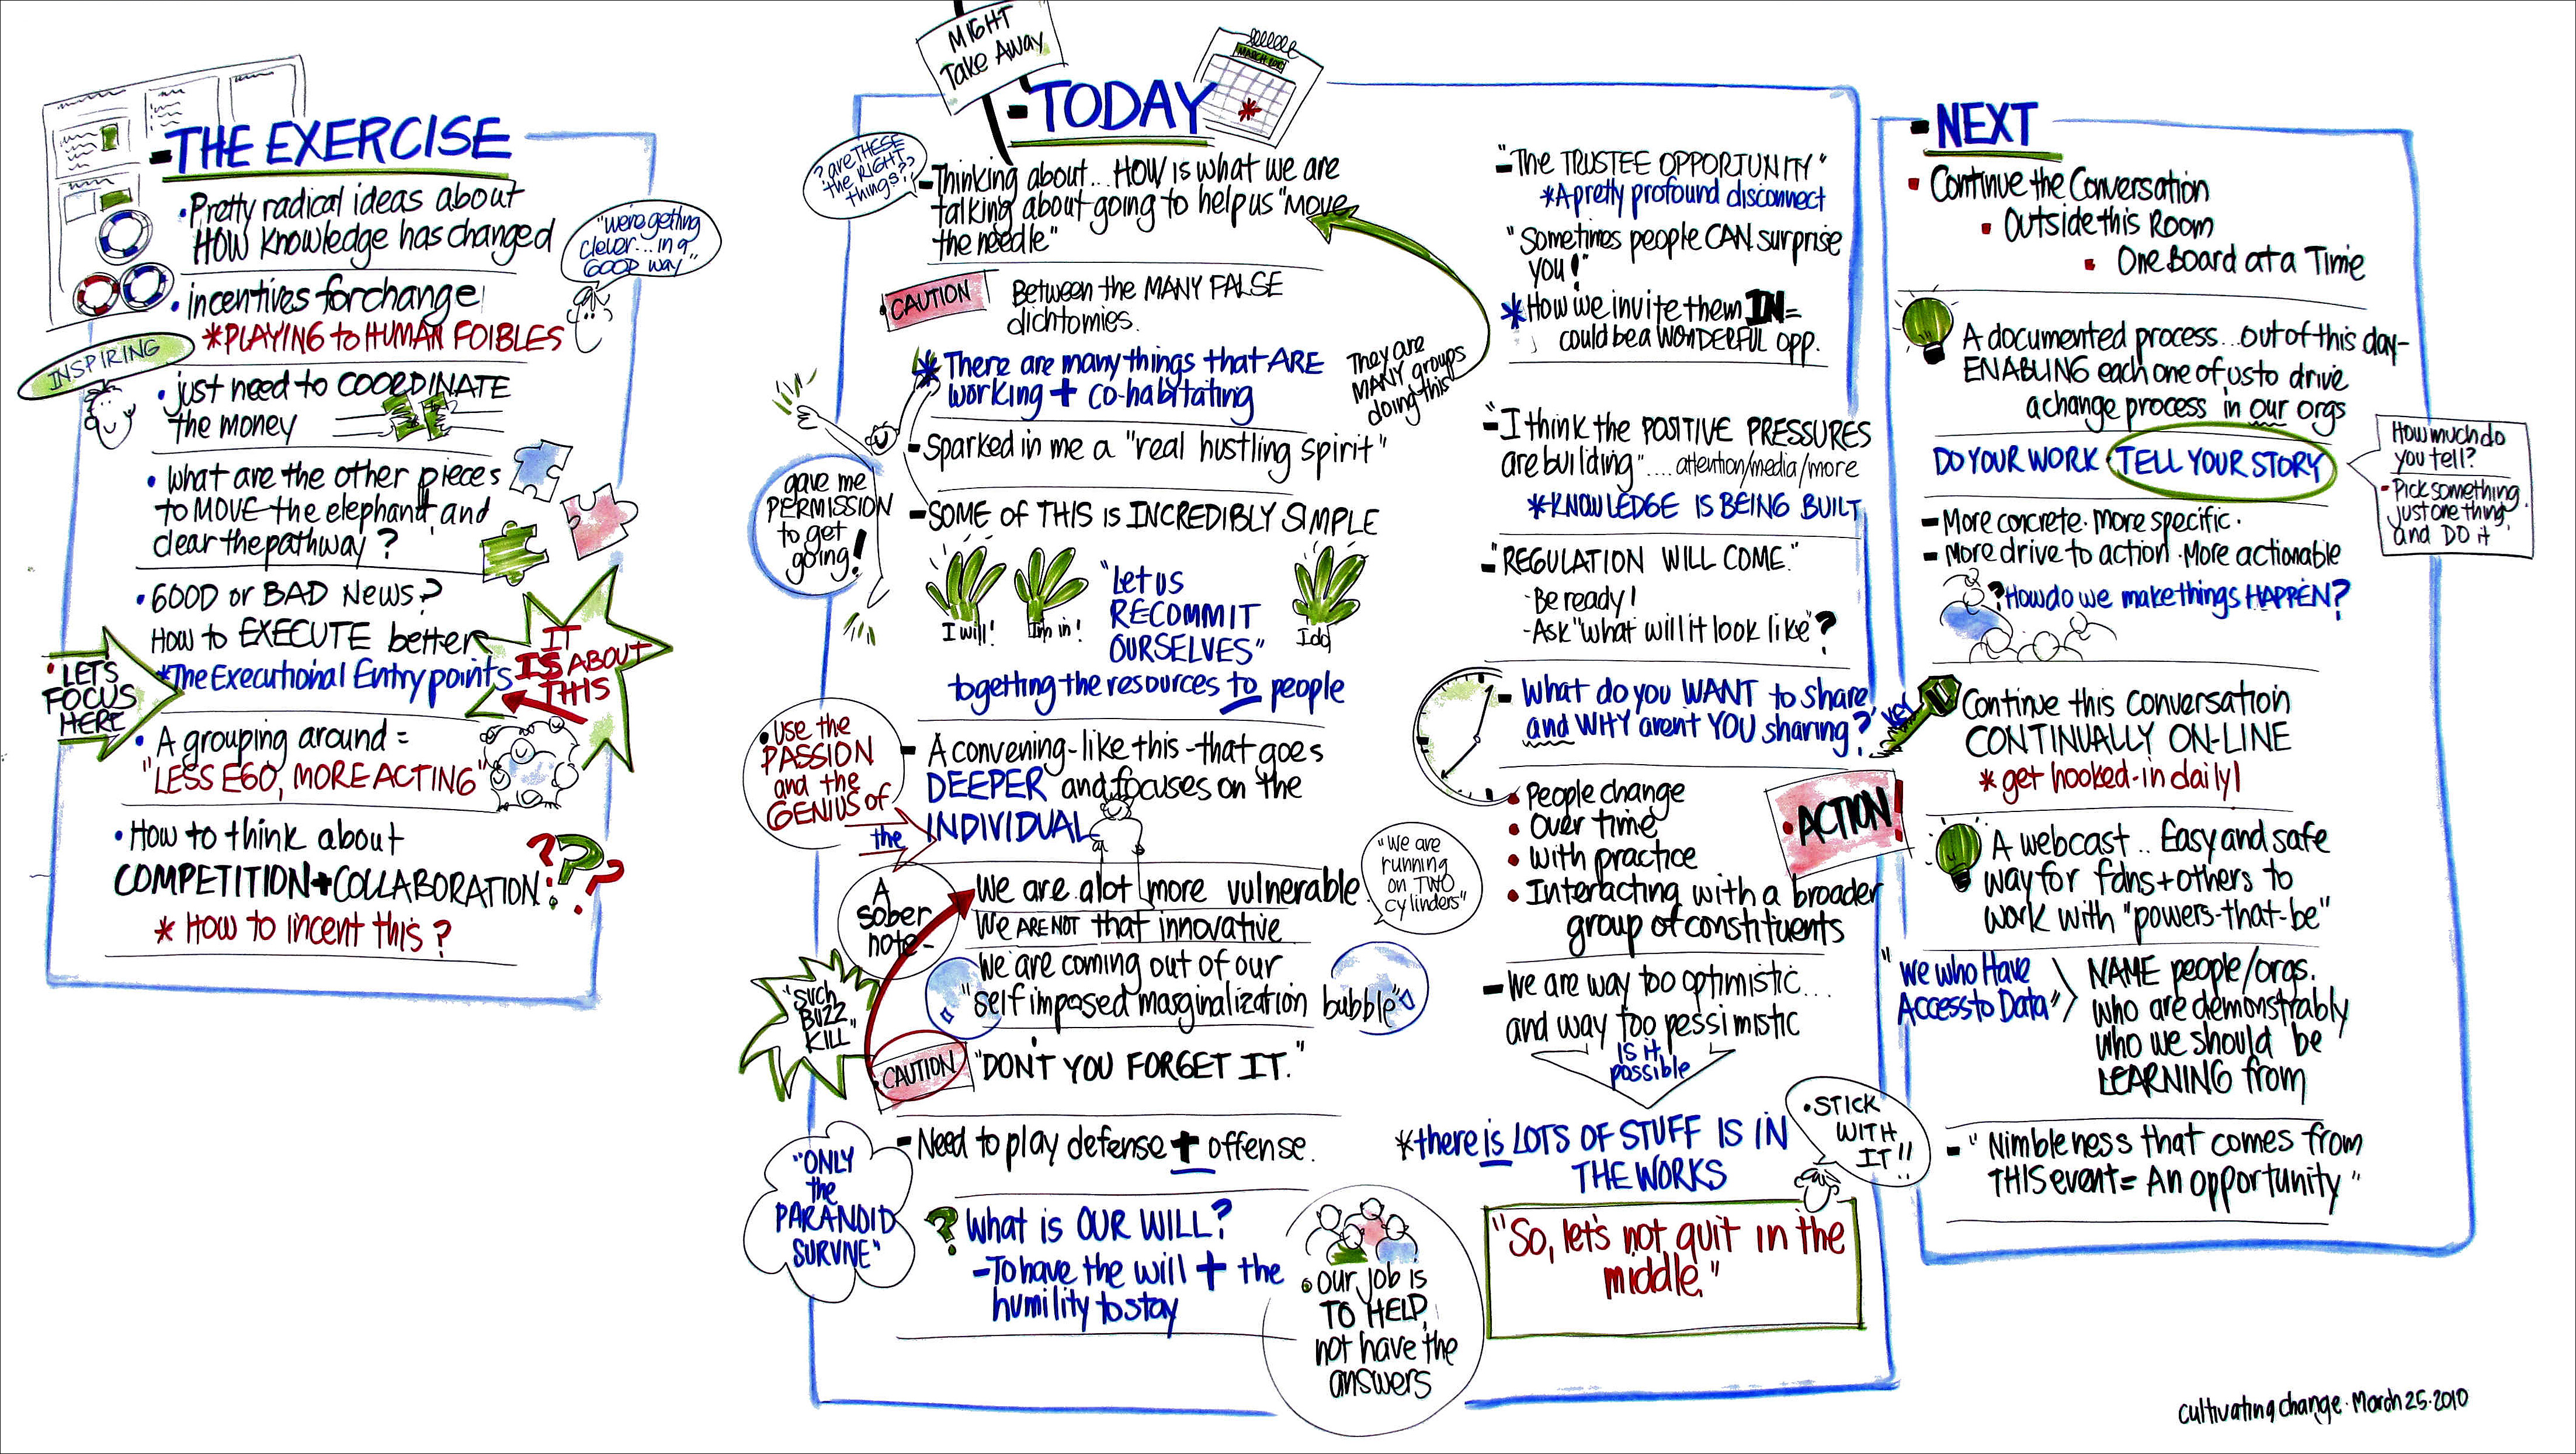 - THE EXERCISE
• Pretty radical ideas about
HOW Knowledge has changed
"we're getting
clever... in a
GOOD way"
• incentives for change
* PLAYING to HUMAN FOIBLES
INSPIRING
• just need to COORDINATE
the money
• what are the other pieces
to MOVE the elephant and
clear the pathway?
• GOOD or BAD News?
How to EXECUTE better
* The Executional Entry points
• LET'S
FOCUS
HERE
IT
IS ABOUT
THIS
• A grouping around =
"LESS EGO, MORE ACTING"
• How to think about
COMPETITION + COLLABORATION
???
* How to incent this?
MIGHT
Take AWAY
- TODAY
MARCH 2010
? are THESE
the RIGHT
things??
- Thinking about... HOW is what we are
talking about going to help us "Move
the needle"
CAUTION
Between the MANY FALSE
dichtomies.
* There are many things that ARE
working + co-habitating
They are
MANY groups
doing this
- Sparked in me a "real hustling spirit"
gave me
PERMISSION
to get
going!
- SOME OF THIS IS INCREDIBLY SIMPLE
I will!
I'm in!
I do
"Let us
RECOMMIT
OURSELVES"
to getting the resources to people
• Use the
PASSION
and the
GENIUS of
the
- A convening - like this - that goes
DEEPER and focuses on the
INDIVIDUAL
A
sober
note -
We are alot more vulnerable
We ARE NOT that innovative
"We are
running
on TWO
cylinders"
We are coming out of our
"self imposed marginalization bubble"
"SUCH
BUZZ
KILL"
CAUTION
"DON'T YOU FORGET IT."
- Need to play defense + offense.
"ONLY
the
PARANOID
SURVIVE"
? What is OUR WILL?
- To have the will + the
humility to stay
• Our job is
TO HELP,
not have the
answers
- "The TRUSTEE OPPORTUNITY"
* A pretty profound disconnect
"Sometimes people CAN surprise
you!"
* How we invite them IN =
could be a WONDERFUL opp.
- "I think the POSITIVE PRESSURES
are building".... attention/media/more
* KNOWLEDGE IS BEING BUILT
- "REGULATION WILL COME."
- Be ready!
- Ask "what will it look like"?
- What do you WANT to share
and WHY aren't YOU sharing?
• People change
• Over time
• With practice
• Interacting with a broader
group of constituents
• ACTION!
- We are way too optimistic...
and way too pessimistic
IS it
possible
* there is LOTS OF STUFF IS IN
THE WORKS
• STICK
WITH
IT!!
"So, let's not quit in the
middle."
- NEXT
▪ Continue the Conversation
▪ Outside this Room
▪ One Board at a Time
A documented process... out of this day -
ENABLING each one of us to drive
a change process in our orgs
DO YOUR WORK • TELL YOUR STORY
How much do
you tell?
• Pick something
just one thing
and DO it
- More concrete. More specific.
- More drive to action. More actionable
? How do we make things HAPPEN?
KEY
Continue this conversation
CONTINUALLY ON-LINE
* get hooked-in daily!
A webcast.. Easy and safe
way for fdns + others to
work with "powers-that-be"
"We who Have
Access to Data"
NAME people/orgs.
who are demonstrably
who we should be
LEARNING from
- "Nimbleness that comes from
THIS event = An opportunity"
cultivating change • March 25 • 2010